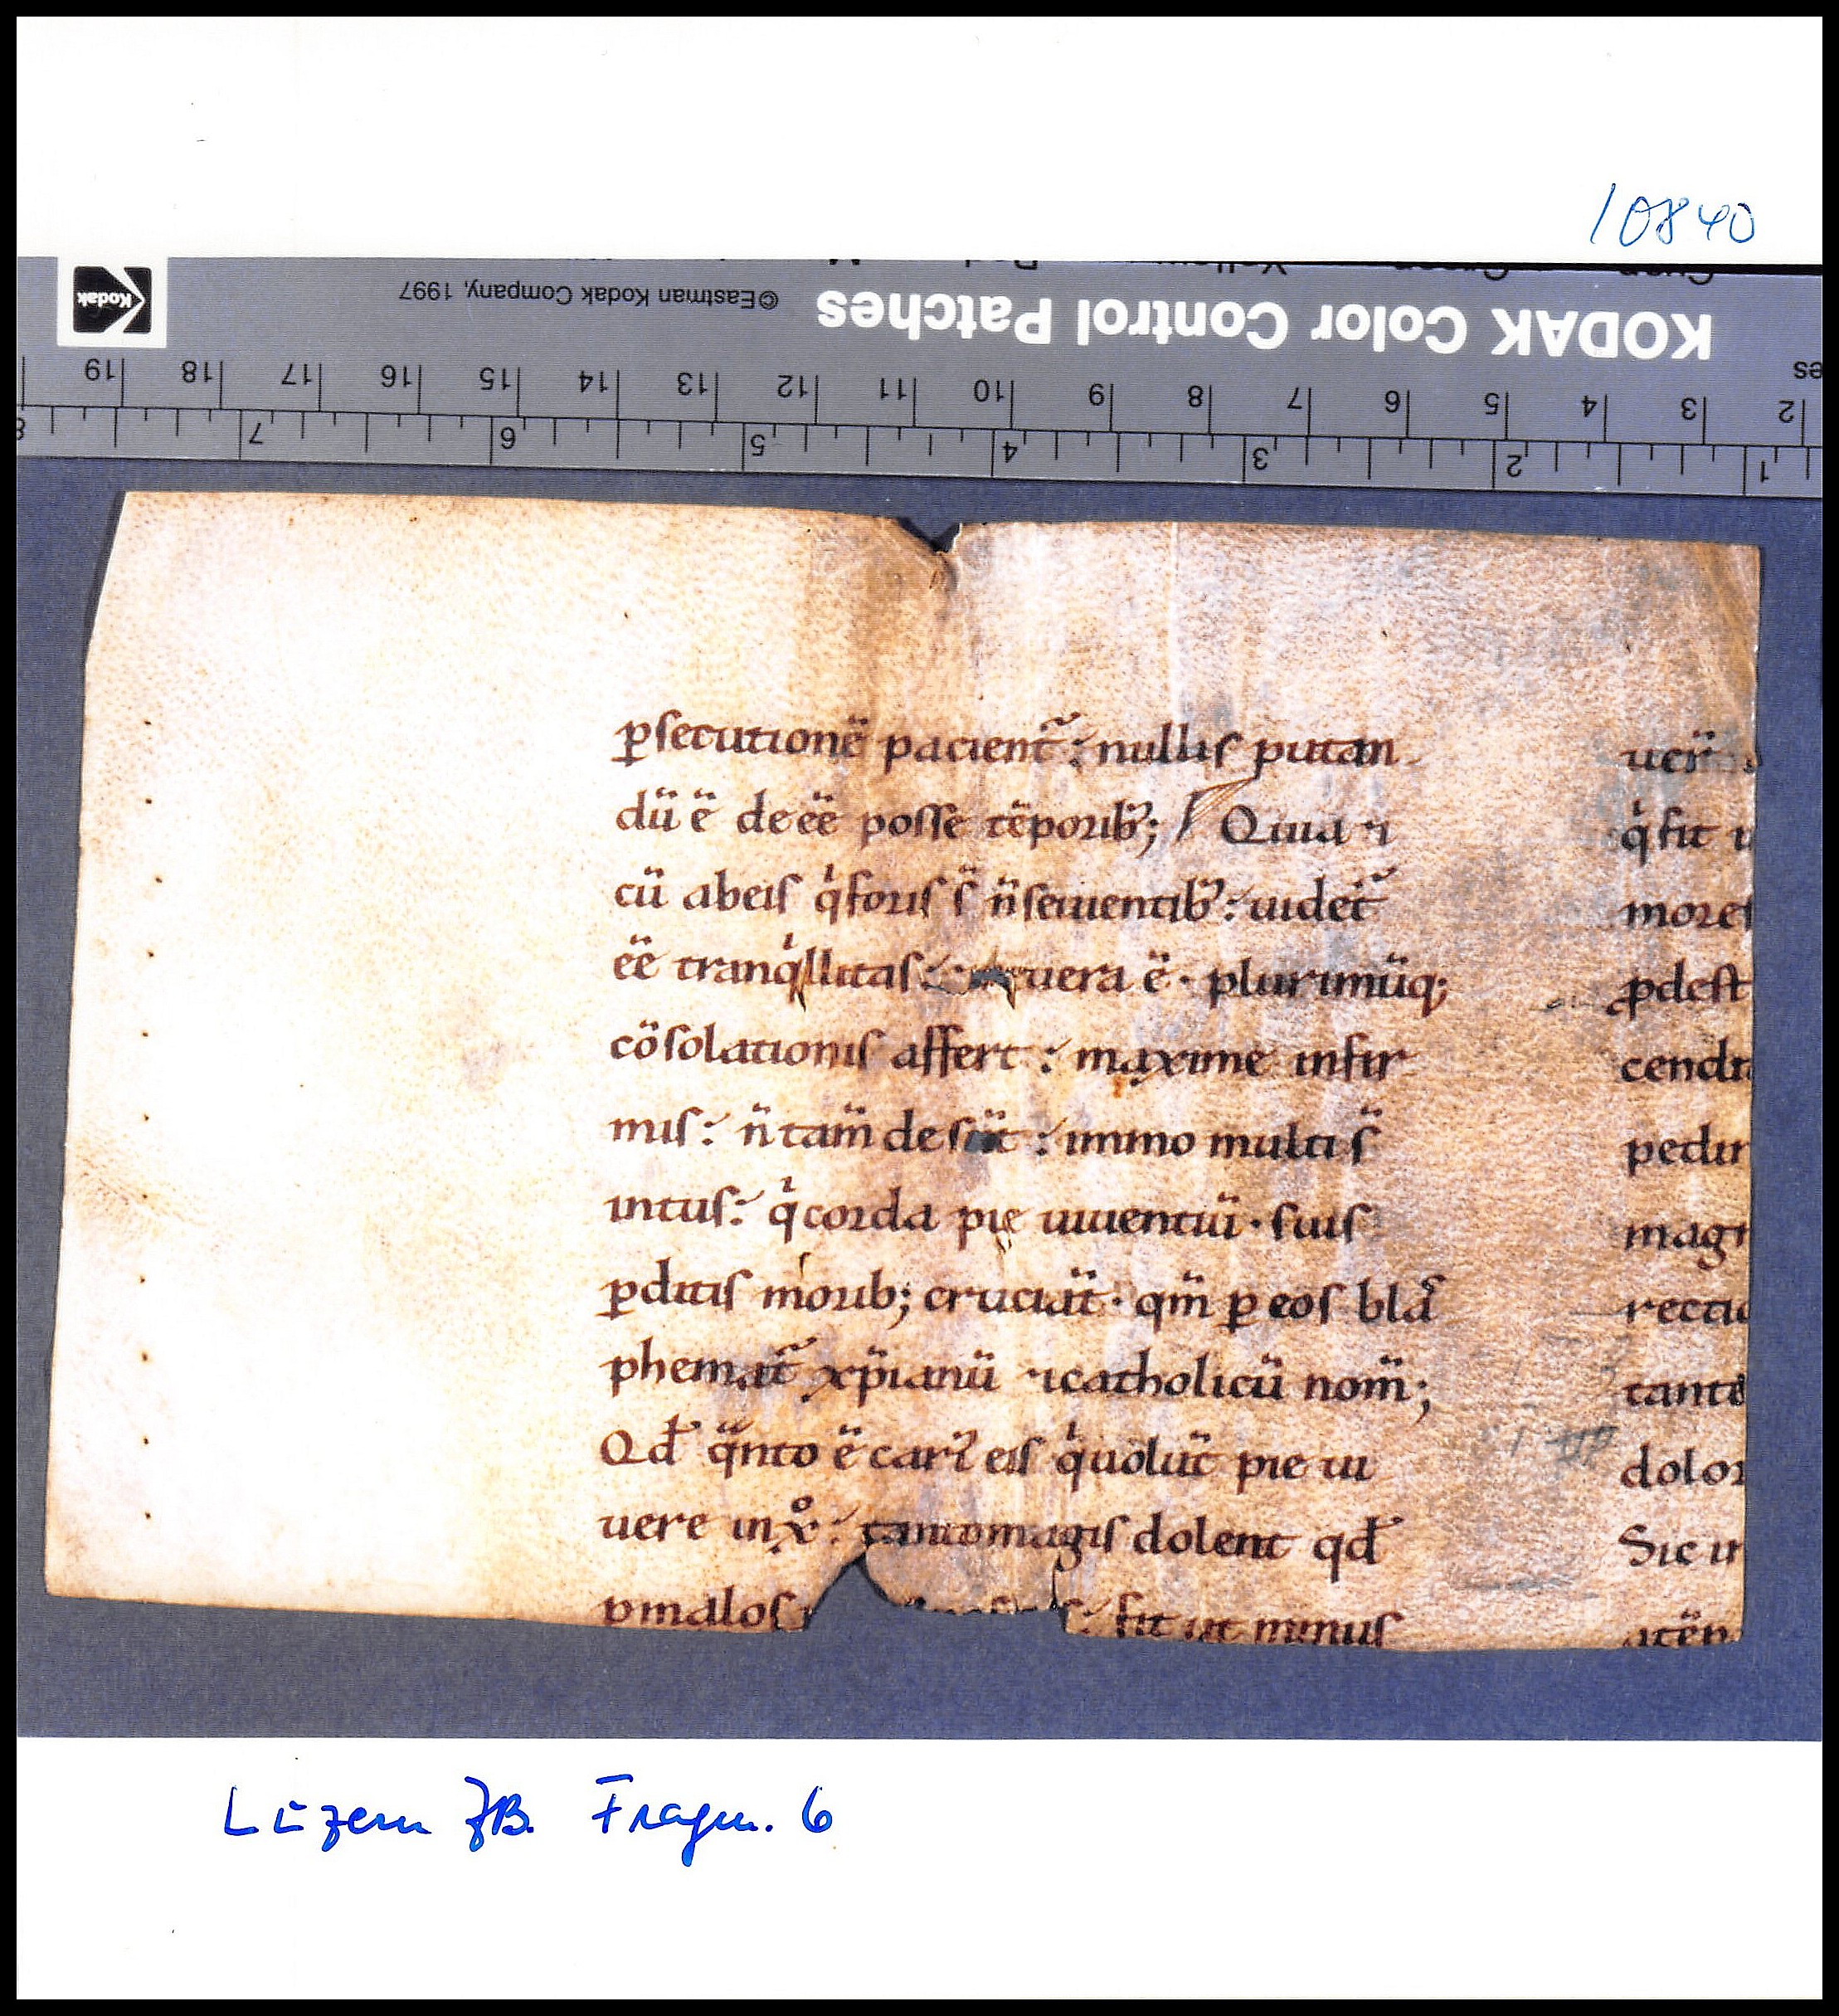 10840
KODAK Color Control Patches
©Eastman Kodak Company, 1997
Kodak
19 18 17 16 15 14 13 12 11 10 9 8 7 6 5 4 3 2
8 7 6 5 4 3 2 1
p̲secutionē pacient᷑: nullis putan
dū ē deēē posse tēporib᷒; Quia ⁊
cū abeis qͥforis s̄ n̄seuientib᷒: uidet᷑
ēē tranqͥllitas uera ē· plurimūq;
cōsolationis affert: maxime infir
mis: n̄ tam̄ desūt: immo multi s̄
intus: qͥcorda pie uiuentiū· suis
p̲ditis morib; cruciāt· qm̄ p̲ eos blaˢ
phemat᷑ xp̄ianū ⁊catholicū nom̄;
Qd̄ qͣnto ē cari᷒ eis qͥuolūt pie ui
uere inxº: tantomagis dolent qd̄
p̲malos fit ut minus
uer̄
qͥfit u
mores
p̲dest
cendi
pedir
magn
rectu
tantē
dolor
Sic in
atēp
Luzern ZB. Fragm. 6